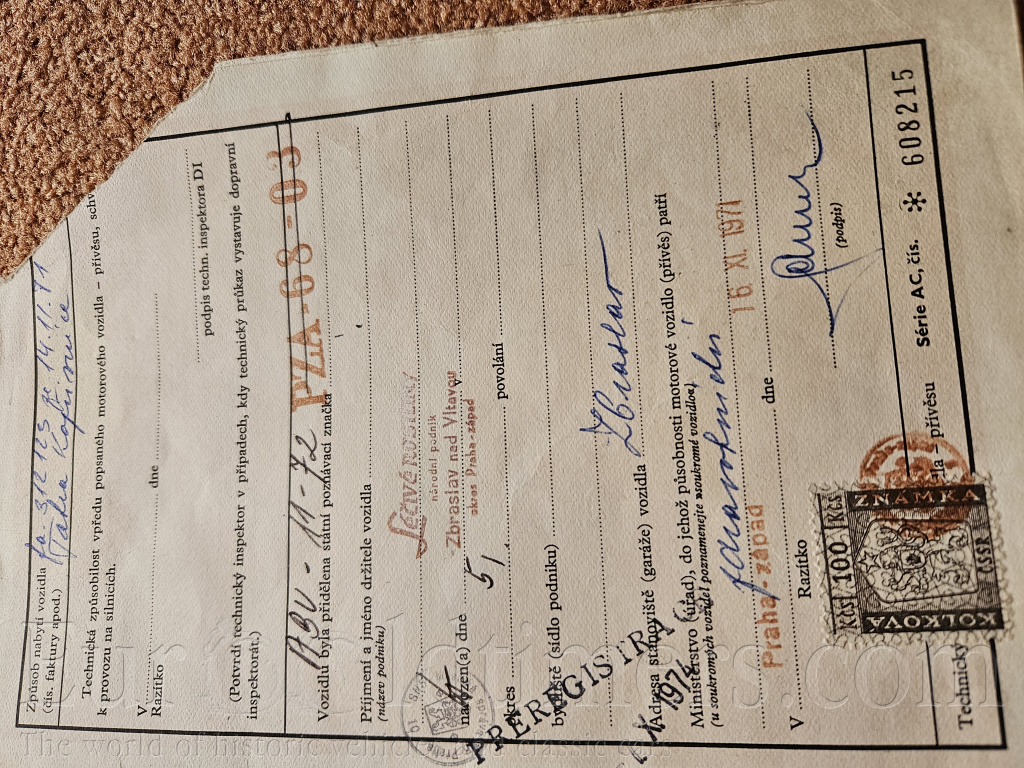 Způsob nabytí vozidla fa. 392123 ze 14.11.71
(čís. faktury apod.) Tatra Kopřivnice
Technická způsobilost vpředu popsaného motorového vozidla – přívěsu, schv
k provozu na silnicích.
V dne
Razítko
podpis techn. inspektora DI
(Potvrdí technický inspektor v případech, kdy technický průkaz vystavuje dopravní
inspektorát.)
ABU-11-72 PZA-68-03
Vozidlu byla přidělena státní poznávací značka
Příjmení a jméno držitele vozidla
(název podniku)
Léčivé rostliny
národní podnik
Zbraslav nad Vltavou
okres Praha-západ
narozen(a) dne v
51
okres povolání
bydliště (sídlo podniku)
PREREGISTRA
1974
Adresa stanoviště (garáže) vozidla Zbraslav
Ministerstvo (úřad), do jehož působnosti motorové vozidlo (přívěs) patří
(u soukromých vozidel poznamenejte »soukromé vozidlo«)
zdravotnictví
Praha-západ 16. XI. 1971
V dne
Razítko
(podpis)
Kčs 100 Kčs
KOLKOVÁ ZNÁMKA
ČSSR
Technický dla – přívěsu Série AC, čís. * 608215
The world of historic vehicles and classic cars